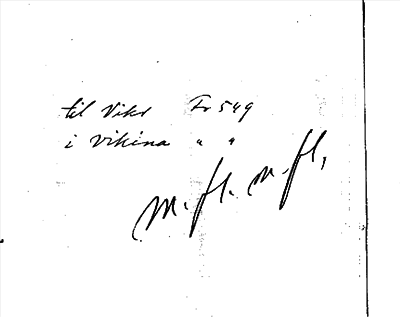 til Vikr Fr 549
i Vikina " "
m. fl. m. fl,